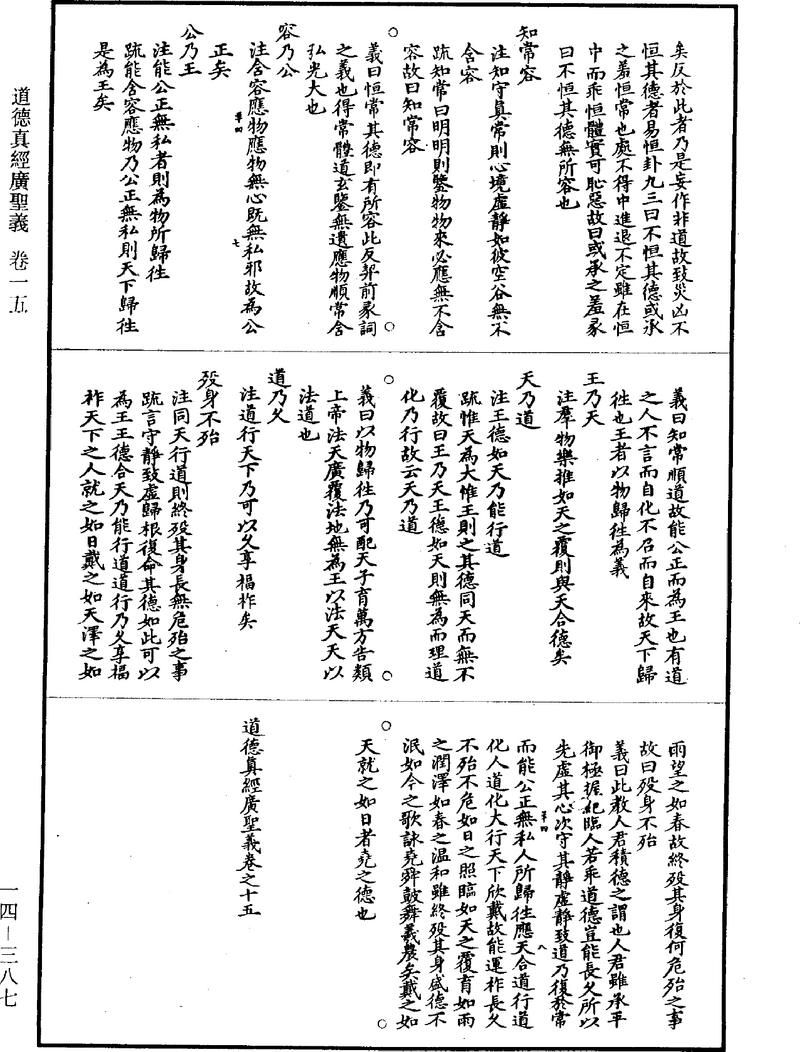 道德真經廣聖義 卷一五
矣反於此者乃是妄作非道故致災凶不
恒其德者易恒卦九三曰不恒其德或承
之羞恒常也處不得中進退不定雖在恒
中而乖恒體實可恥惡故曰或承之羞彖
曰不恒其德無所容也
知常容
注知守真常則心境虛靜如彼空谷無不
含容
疏知常曰明明則鑒物物來必應無不含
容故曰知常容
義曰恒常其德即有所容此反契前彖詞
之義也得常體道玄鑒無遺應物順常含
弘光大也
容乃公
注含容應物應物無心既無私邪故為公
正矣
公乃王
注能公正無私者則為物所歸往
疏能含容應物乃公正無私則天下歸往
是為王矣
義曰知常順道故能公正而為王也有道
之人不言而自化不召而自來故天下歸
往也王者以物歸往為義
王乃天
注羣物樂推如天之覆則與天合德矣
天乃道
注王德如天乃能行道
疏惟天為大惟王則之其德同天而無不
覆故曰王乃天王德如天則無為而理道
化乃行故云天乃道
義曰以物歸往乃可配天子育萬方告類
上帝法天廣覆法地無為王以法天天以
法道也
道乃久
注道行天下乃可以久享福祚矣
歿身不殆
注同天行道則終歿其身長無危殆之事
疏言守靜致虛歸根復命其德如此可以
為王王德合天乃能行道道行乃久享福
祚天下之人就之如日戴之如天澤之如
雨望之如春故終歿其身復何危殆之事
故曰歿身不殆
義曰此教人君積德之謂也人君雖承平
御極握紀臨人若乖道德豈能長久所以
先虛其心次守其靜虛靜致道乃復於常
而能公正無私人所歸往應天合道行道
化人道化大行天下欣戴故能運祚長久
不殆不危如日之照臨如天之覆育如雨
之潤澤如春之溫和雖終歿其身盛德不
泯如今之歌詠堯舜鼓舞羲農矣戴之如
天就之如日者堯之德也
道德真經廣聖義卷之十五
一四—三八七